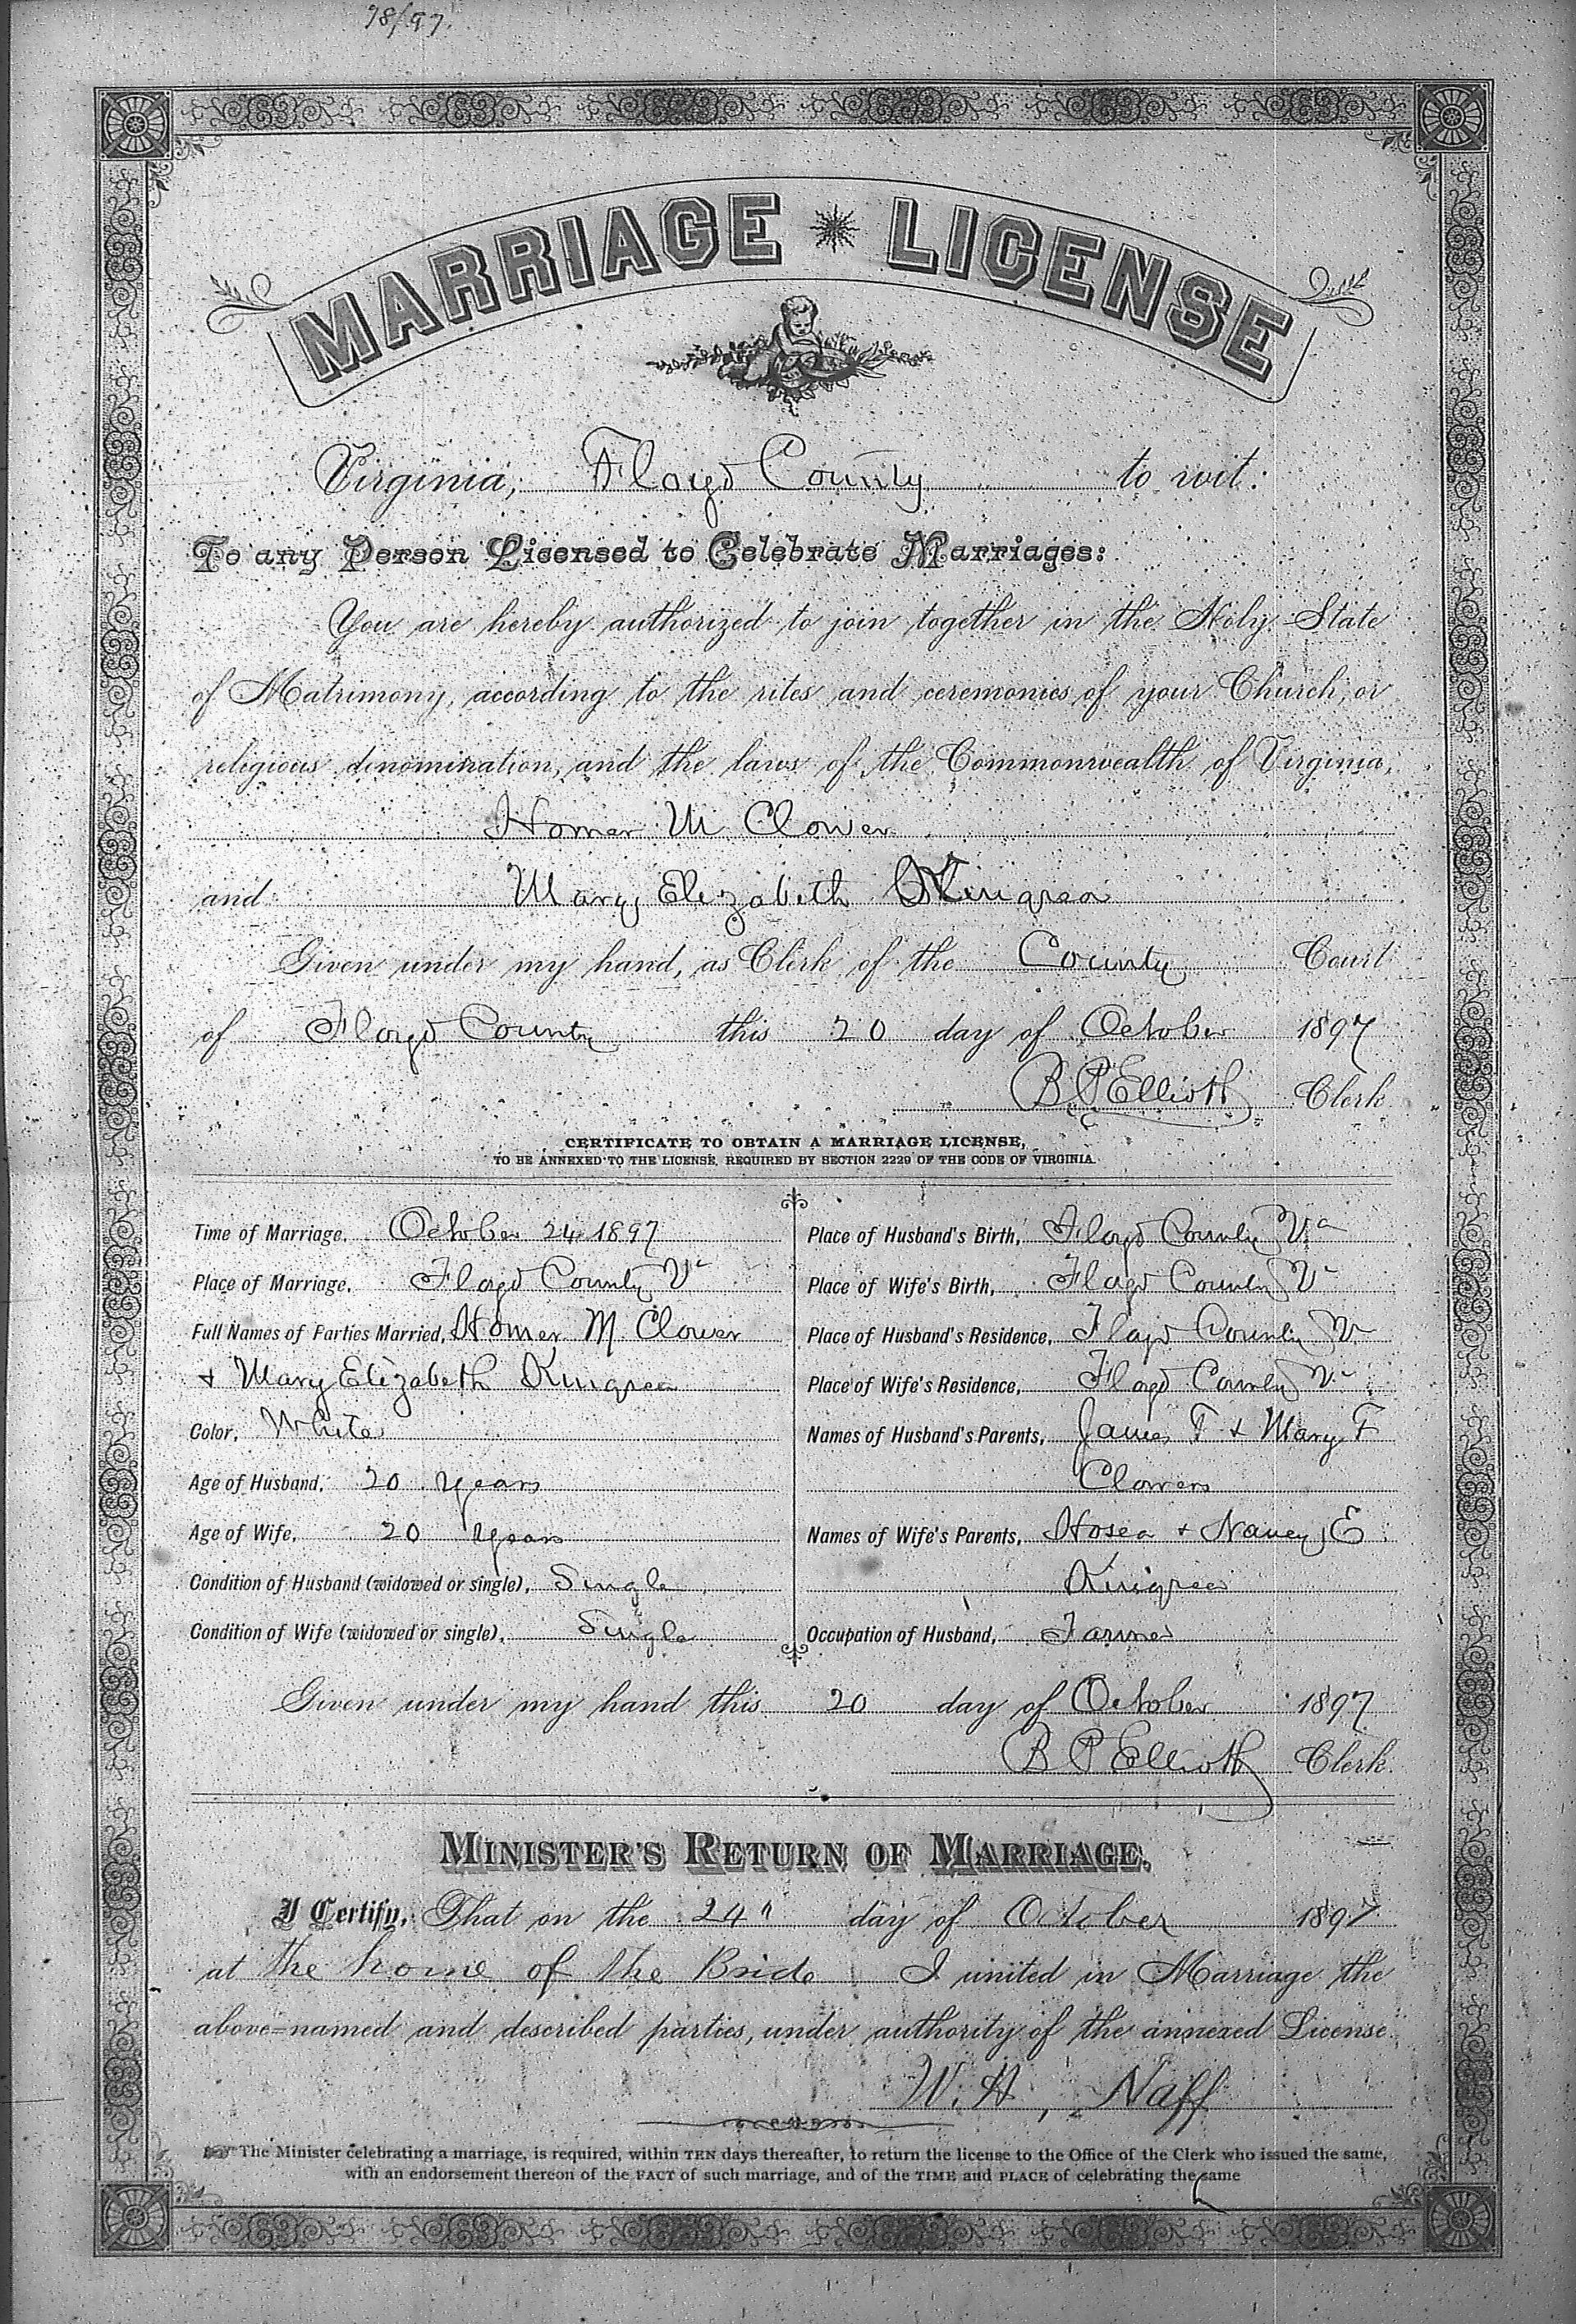 78/97.
MARRIAGE LICENSE
Virginia, Floyd County to wit:
To any Person Licensed to Celebrate Marriages:
You are hereby authorized to join together in the Holy State
of Matrimony, according to the rites and ceremonies of your Church, or
religious denomination, and the laws of the Commonwealth of Virginia,
Homer M Clower
and Mary Elizabeth Kingrea
Given under my hand, as Clerk of the County Court
of Floyd County this 20 day of October 1897
B P Elliott Clerk
CERTIFICATE TO OBTAIN A MARRIAGE LICENSE,
TO BE ANNEXED TO THE LICENSE, REQUIRED BY SECTION 2229 OF THE CODE OF VIRGINIA.
Time of Marriage, October 24, 1897
Place of Marriage, Floyd County Va
Full Names of Parties Married, Homer M Clower
+ Mary Elizabeth Kingrea
Color, White
Age of Husband, 20 years
Age of Wife, 20 years
Condition of Husband (widowed or single), Single
Condition of Wife (widowed or single), Single
Place of Husband's Birth, Floyd County Va
Place of Wife's Birth, Floyd County Va
Place of Husband's Residence, Floyd County Va
Place of Wife's Residence, Floyd County Va
Names of Husband's Parents, James T + Mary F
Clowers
Names of Wife's Parents, Hosea + Nancy E
Kingrea
Occupation of Husband, Farmer
Given under my hand this 20 day of October 1897
B P Elliott Clerk.
MINISTER'S RETURN OF MARRIAGE.
I Certify, That on the 24" day of October 1897
at the home of the Bride I united in Marriage the
above-named and described parties, under authority of the annexed License.
W. H, Naff
The Minister celebrating a marriage, is required, within TEN days thereafter, to return the license to the Office of the Clerk who issued the same,
with an endorsement thereon of the FACT of such marriage, and of the TIME and PLACE of celebrating the same